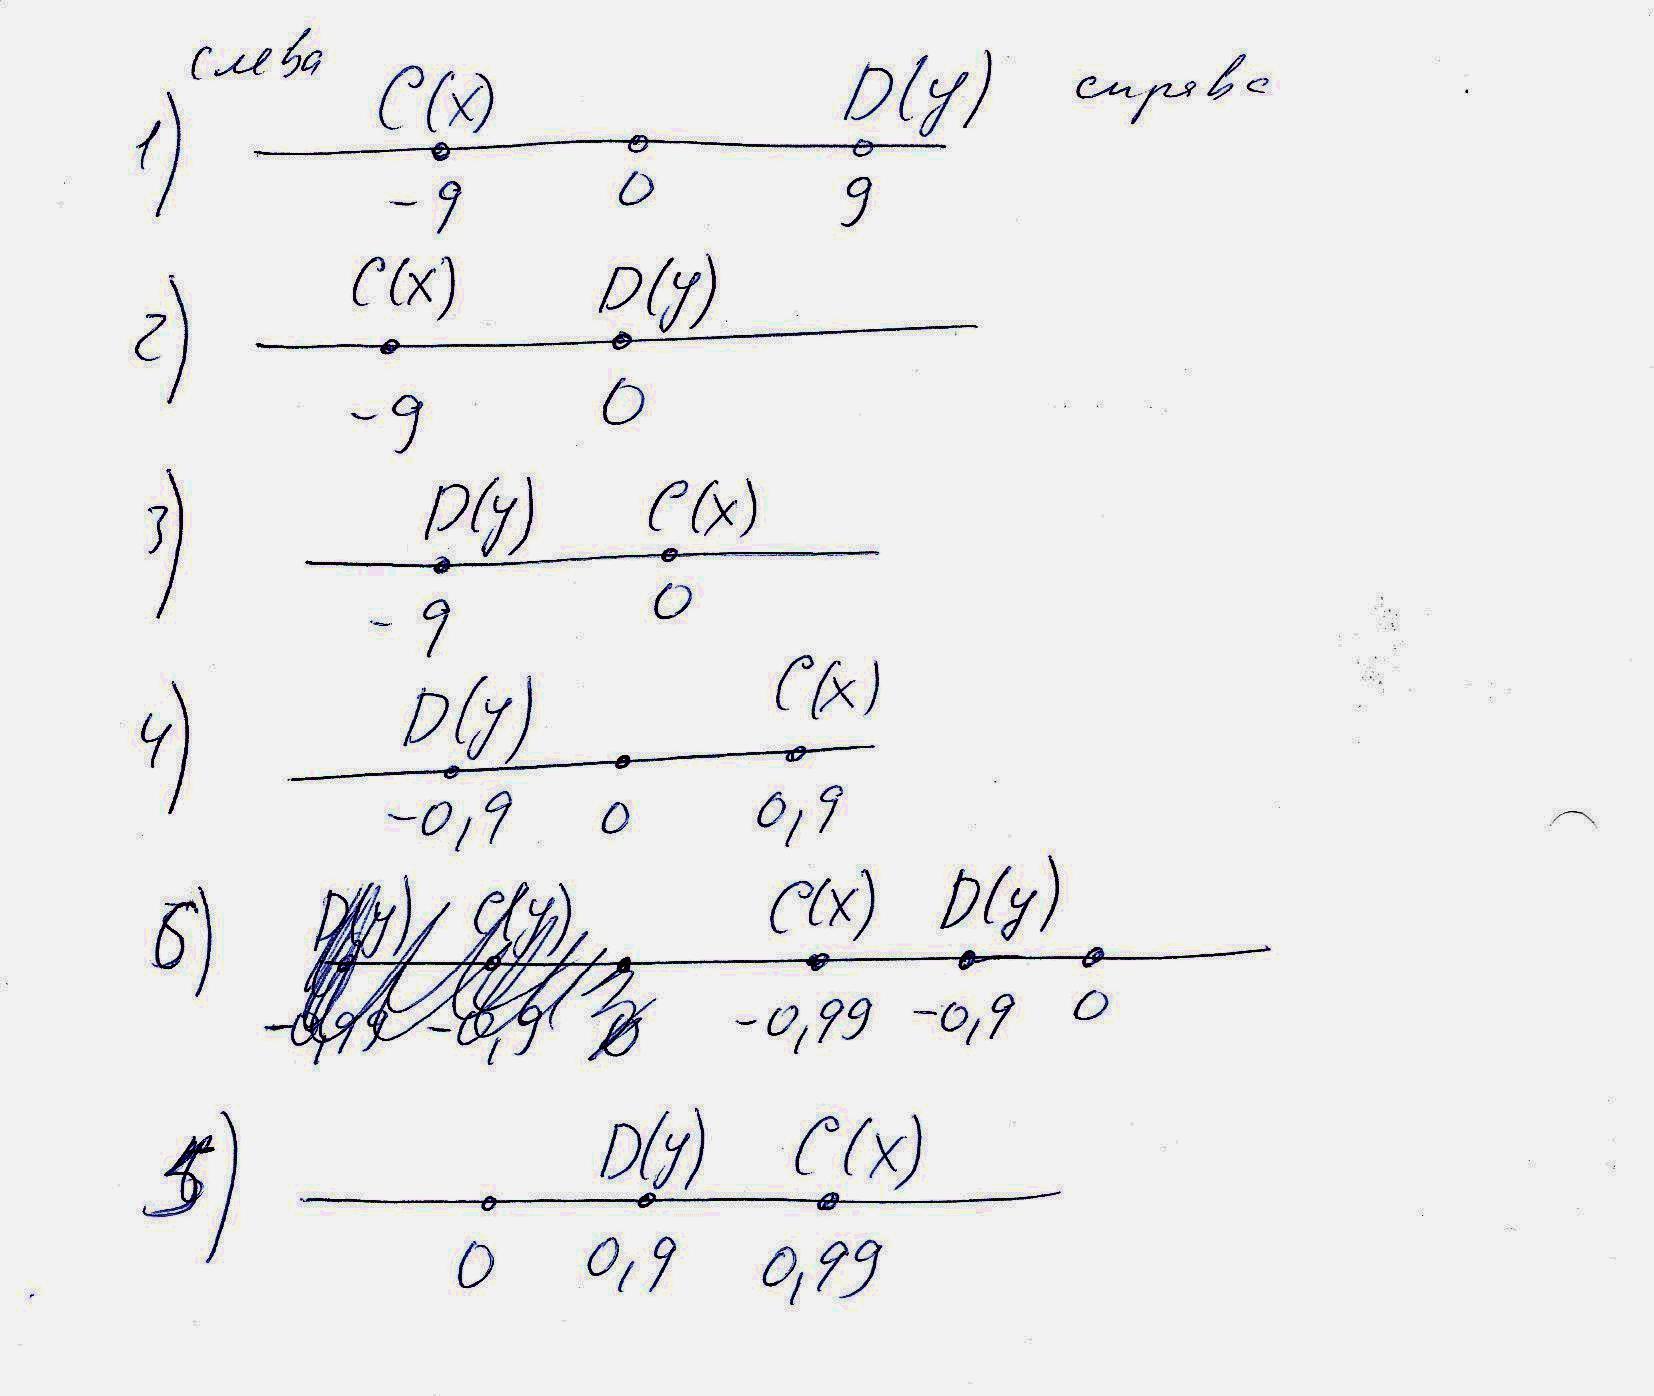 слева
C(x) D(y) справа
1)
-9 0 9
C(x) D(y)
2)
-9 0
D(y) C(x)
3)
-9 0
D(y) C(x)
4)
-0,9 0 0,9
D(y) C(y) C(x) D(y)
б)
-0,99 -0,9 0 -0,99 -0,9 0
D(y) C(x)
5)
0 0,9 0,99